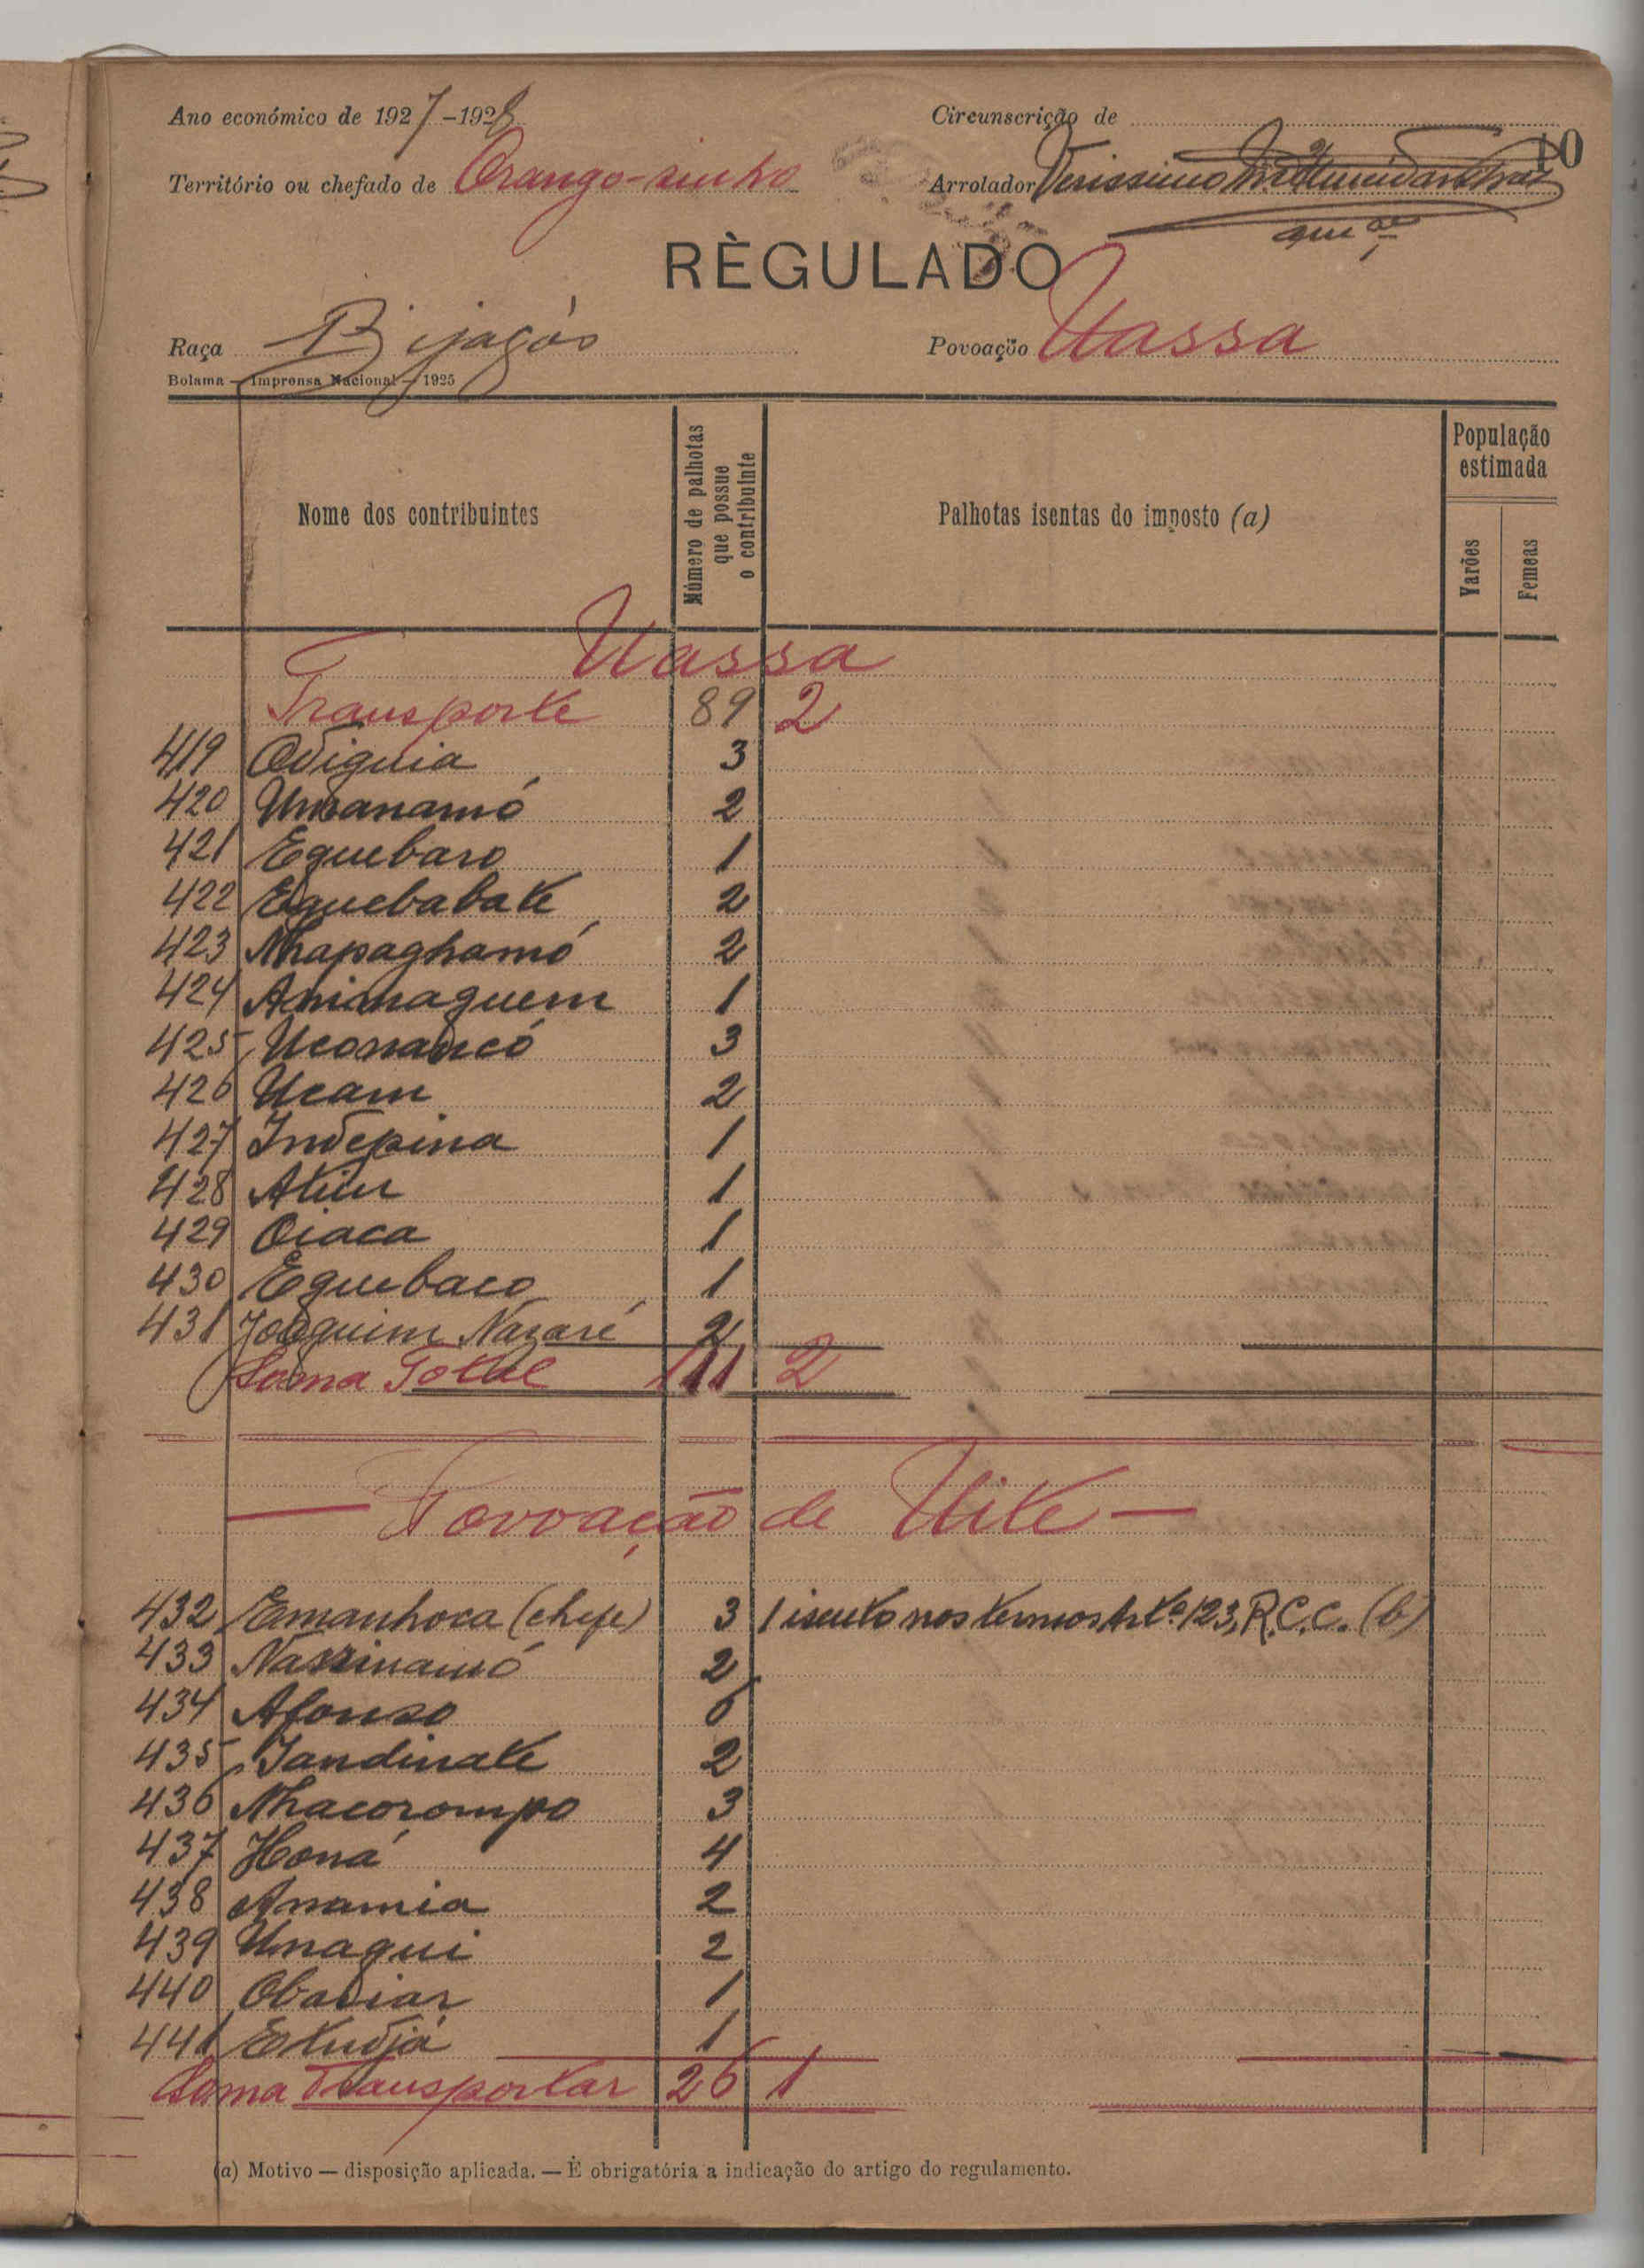 Ano económico de 1927-1928 Circunscrição de
10
Território ou chefado de Orango-sinho Arrolador Verissimo
RÈGULADO
Raça Bijagós Povoação Uassa
Bolama — Imprensa Nacional — 1925
Nome dos contribuintes
Número de palhotas que possue o contribuinte
Palhotas isentas do imposto (a)
População estimada
Varões
Femeas
Uassa
Transporte 89 2
419 Odiguia 3
420 Umanamó 2
421 Equebaro 1
422 Equebabate 2
423 Nhapaghamó 2
424 Animaguem 1
425 Uconaucó 3
426 Ucam 2
427 Indepina 1
428 Atiur 1
429 Oiaca 1
430 Equebaco 1
431 Joaquim Nazaré 2
Soma Total 111 2
— Povoação de Uite —
432 Emanhoca (chefe) 3 1 isento nos termos Artº 123, R.C.C. (b)
433 Nazinamó 2
434 Afonso 6
435 Jandinate 2
436 Nhacorompo 3
437 Honá 4
438 Anamia 2
439 Unagui 2
440 Obadiar 1
441 Etudjá 1
Soma Transportar 26 1
(a) Motivo — disposição aplicada. — É obrigatória a indicação do artigo do regulamento.